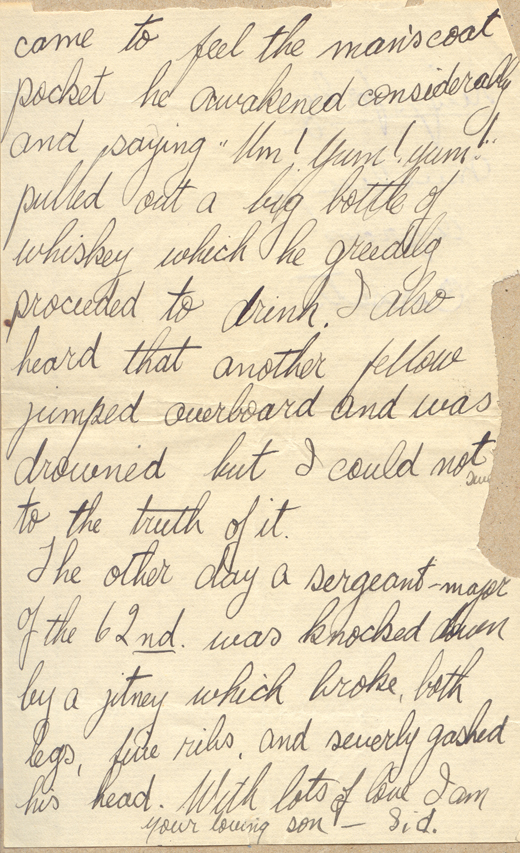 came to feel the man's coat
pocket he awakened considerably
and saying "Um! Yum! Yum!"
pulled out a big bottle of
whiskey which he greedily
proceeded to drink. I also
heard that another fellow
jumped overboard and was
drowned but I could not
to the truth of it.
The other day a sergeant-major
of the 62nd. was knocked down
by a jitney which broke, both
legs, five ribs, and severly gashed
his head. With lots of love I am
your loving son - Sid.